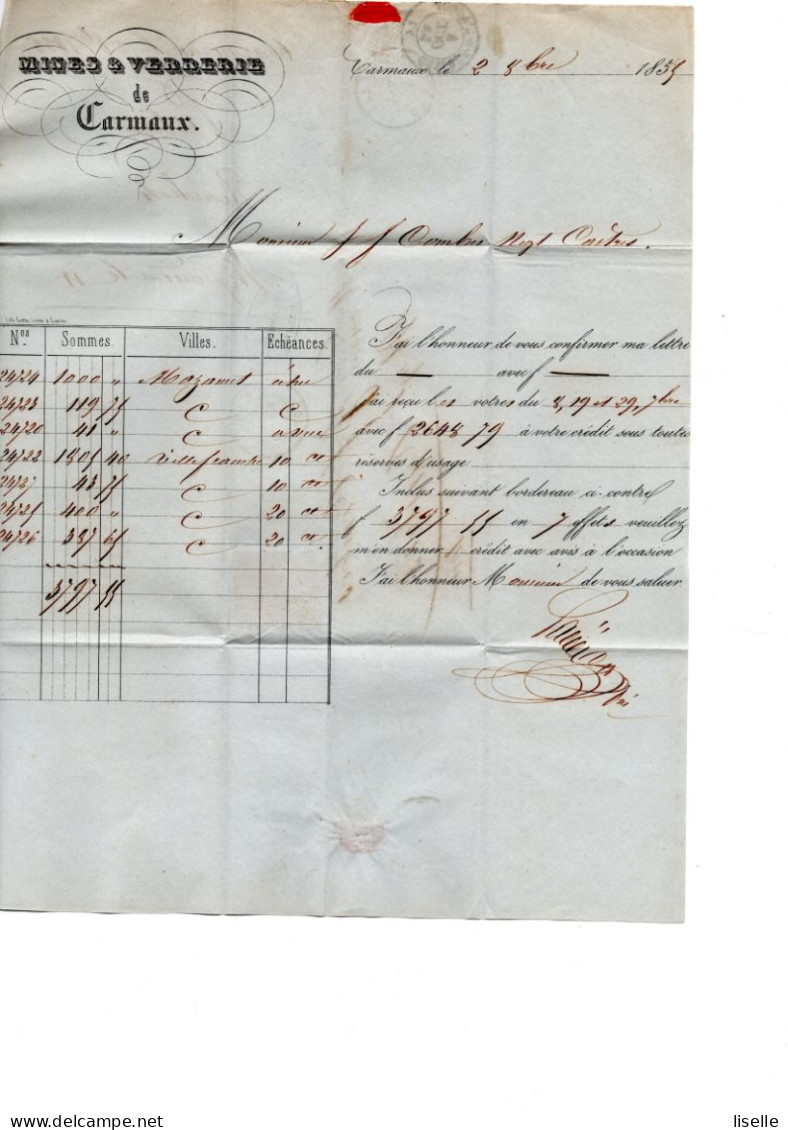 MINES & VERRERIE
de
Carmaux.
Carmaux, le 2 8bre 1855
Monsieur J J Combes Negt Castres.
Nos. Sommes. Villes. Echéances.
24724 1000 " Mazamet à vue
24723 119 75 C C
24720 41 " C à vue
24722 1801 40 Villefranche 10 ct
24727 43 75 C 10 ct
24725 400 " C 20 ct
24726 387 65 C 20 ct
3797 55
J'ai l'honneur de vous confirmer ma lettre
du — avec f —
J'ai reçu les vôtres du 8, 19 et 29, 7bre
avec f 2648 79 à votre crédit sous toutes
réserves d'usage
Inclus suivant bordereau ci-contre
f 3797 55 en 7 effets veuillez
m'en donner crédit avec avis à l'occasion
J'ai l'honneur Monsieur de vous saluer.
delcampe.net
liselle